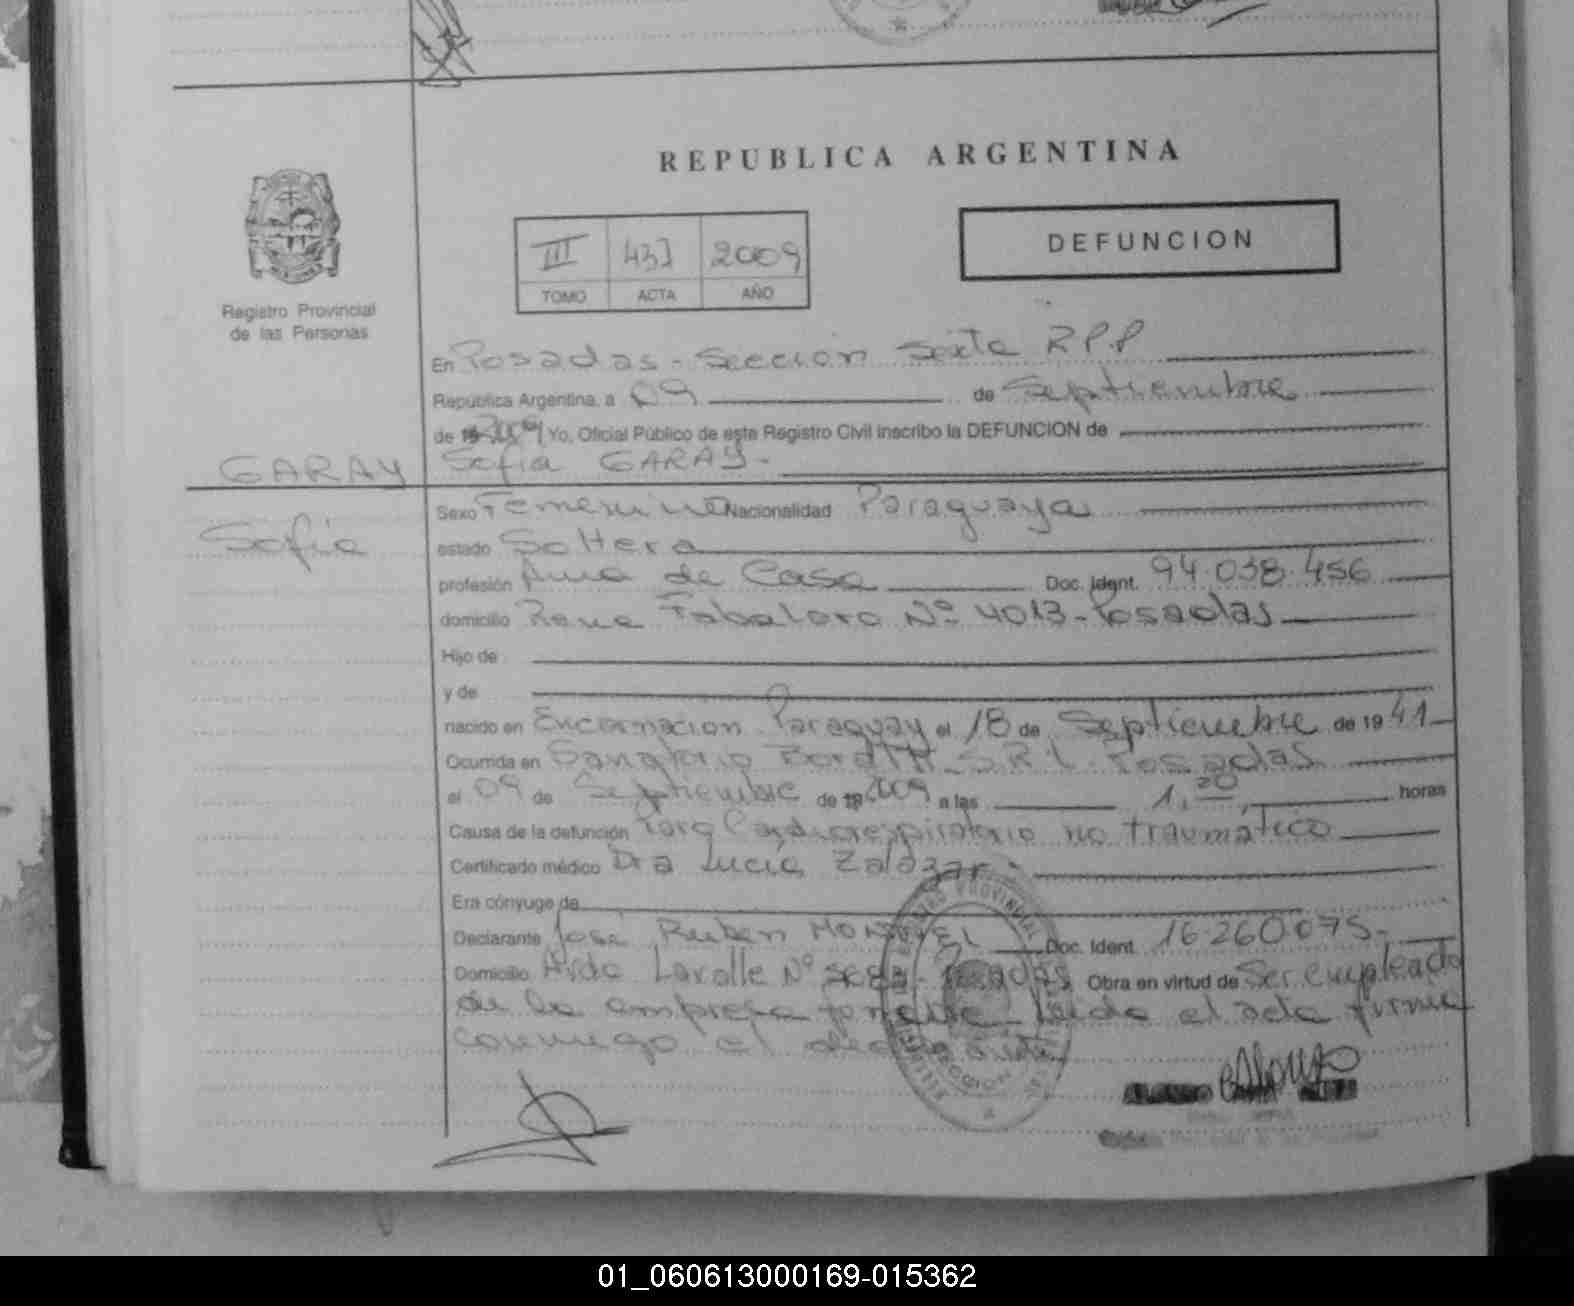 REPUBLICA ARGENTINA
Registro Provincial
de las Personas
III 437 2009
TOMO ACTA AÑO
DEFUNCION
En Posadas - Sección Sexta R.P.P
República Argentina, a 09 de Septiembre
de 2009 Yo, Oficial Público de este Registro Civil inscribo la DEFUNCION de
GARAY Sofia GARAY.-
Sofia
Sexo Femenino Nacionalidad Paraguaya
estado Soltera
profesión Ama de Casa Doc. Ident. 94.038.456
domicilio Rene Fabaloro Nº 4013 - Posadas
Hijo de
y de
nacido en Encarnacion Paraguay el 18 de Septiembre de 1941
Ocurrida en Sanatorio Boratti S.R.L. Posadas
el 09 de Septiembre de 2009 a las 1,20 horas
Causa de la defunción Paro Cardiorespiratorio no traumático
Certificado médico Dra Lucia Zalazar -
Era cónyuge de
Declarante José Ruben MONTIEL Doc. Ident. 16.260.075.-
Domicilio Avda Lavalle Nº Posadas Obra en virtud de Ser empleado
de la empresa leida el acta firma
conmigo el declarante
01_060613000169-015362